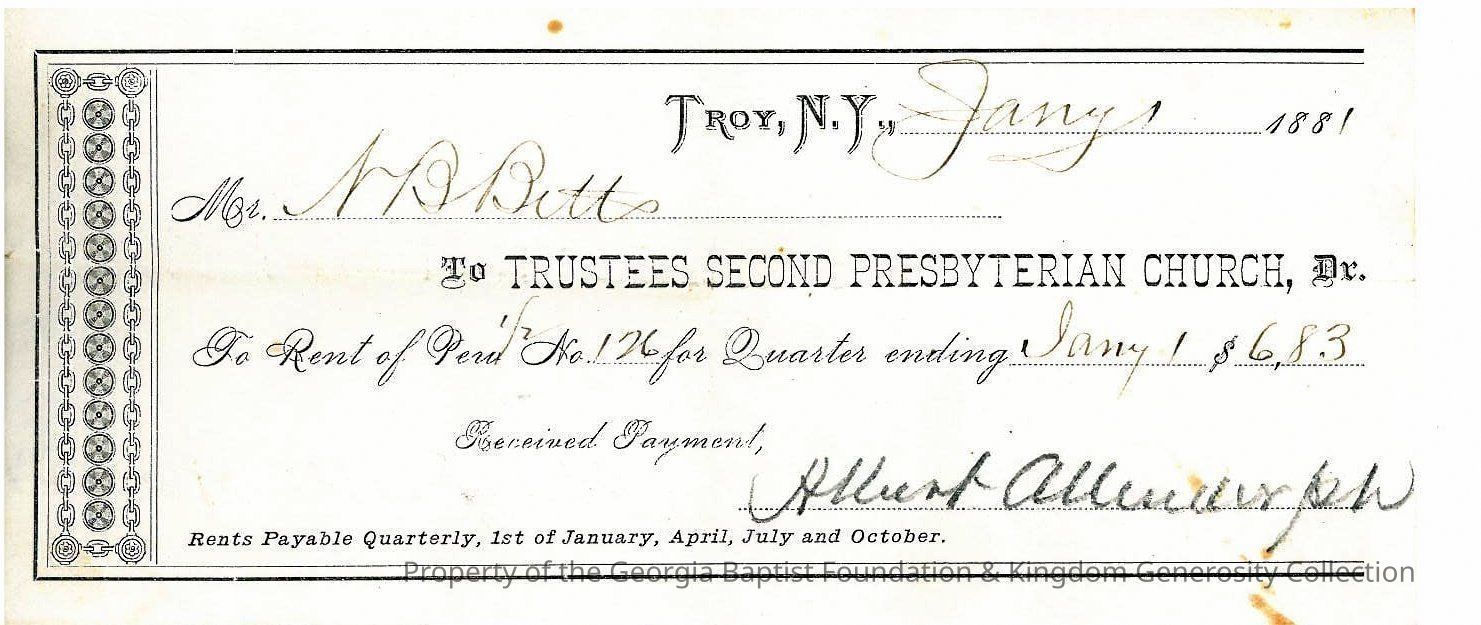 Troy, N.Y., Jany 1 1881
Mr. N B Betts
To TRUSTEES SECOND PRESBYTERIAN CHURCH, Dr.
To Rent of Pew 1/2 No. 126 for Quarter ending Jany 1 $ 6,83
Received Payment,
Albert Allendorph
Rents Payable Quarterly, 1st of January, April, July and October.
Property of the Georgia Baptist Foundation & Kingdom Generosity Collection